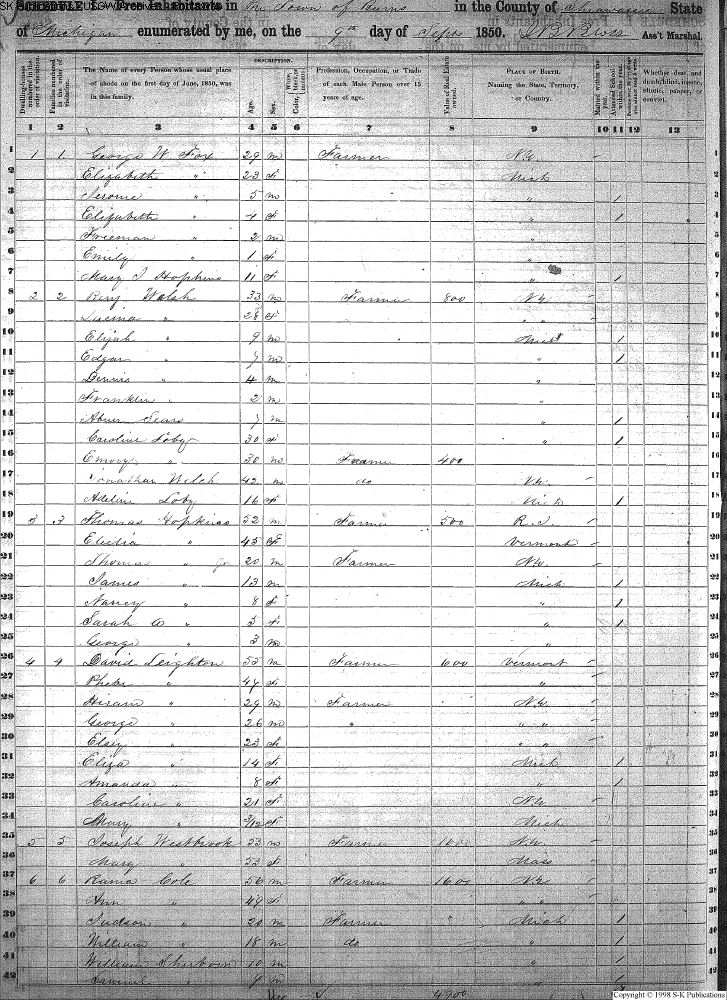 Free Inhabitants in The Town of Burns in the County of Shiawassee State
of Michigan enumerated by me, on the 9th day of Sept 1850. Ass't Marshal.
DESCRIPTION.
Dwelling-houses numbered in the order of visitation.
Families numbered in the order of visitation.
The Name of every Person whose usual place of abode on the first day of June, 1850, was in this family.
Age.
Sex.
Profession, Occupation, or Trade of each Male Person over 15 years of age.
Value of Real Estate owned.
PLACE OF BIRTH. Naming the State, Territory, or Country.
Married within the year.
Attended School within the year.
Whether deaf and dumb, blind, insane, idiotic, pauper, or convict.
1 2 3 4 5 6 7 8 9 10 11 12 13
1 1 1 George W Fox 29 m Farmer N.Y.
2 Elizabeth " 23 f Mich
3 Jerome " 5 m " 1
4 Elizabeth " 4 f " 1
5 Freeman " 2 m "
6 Emily " 1 f "
7 Mary J Hopkins 11 f " 1
8 2 2 Benj Welsh 33 m Farmer 800 N.Y.
9 Lucina " 28 f " "
10 Elijah " 9 m Mich 1
11 Edgar " 7 m " 1
12 Dennis " 4 m "
13 Franklin " 2 m "
14 Abner Sears 7 m " 1
15 Caroline Loby 30 f " 1
16 Emory " 30 m Farmer 400
17 Jonathan Welch 42 m do
18 Adeline Loby 16 f Mich 1
19 3 3 Thomas Hopkins 52 m Farmer 500 R.I
20 Electia " 45 f Vermont
21 Thomas " Jr 20 m Farmer N.Y.
22 James " 13 m Mich 1
23 Nancy " 8 f " 1
24 Sarah C " 5 f " 1
25 George " 3 m "
26 4 4 David Leighton 53 m Farmer 600 Vermont
27 Phebe " 47 f "
28 Hiram " 29 m Farmer N.Y.
29 George " 26 m " " "
30 Elsey " 23 f " "
31 Eliza " 14 f Mich 1
32 Amanda " 8 f " 1
33 Caroline " 21 f N.Y.
34 Mary " 3/12 f Mich
35 5 5 Joseph Westbrook 53 m Farmer 1000 N.Y.
36 Mary " 53 f Mass
37 6 6 Cole 56 m Farmer 1600 N.Y.
38 Ann " 49 f " "
39 Judson " 20 m Farmer " Mich 1
40 William " 18 m do " 1
41 William 10 m " 1
42 Samuel " 9 m "
4900
Copyright © 1998 S-K Publications